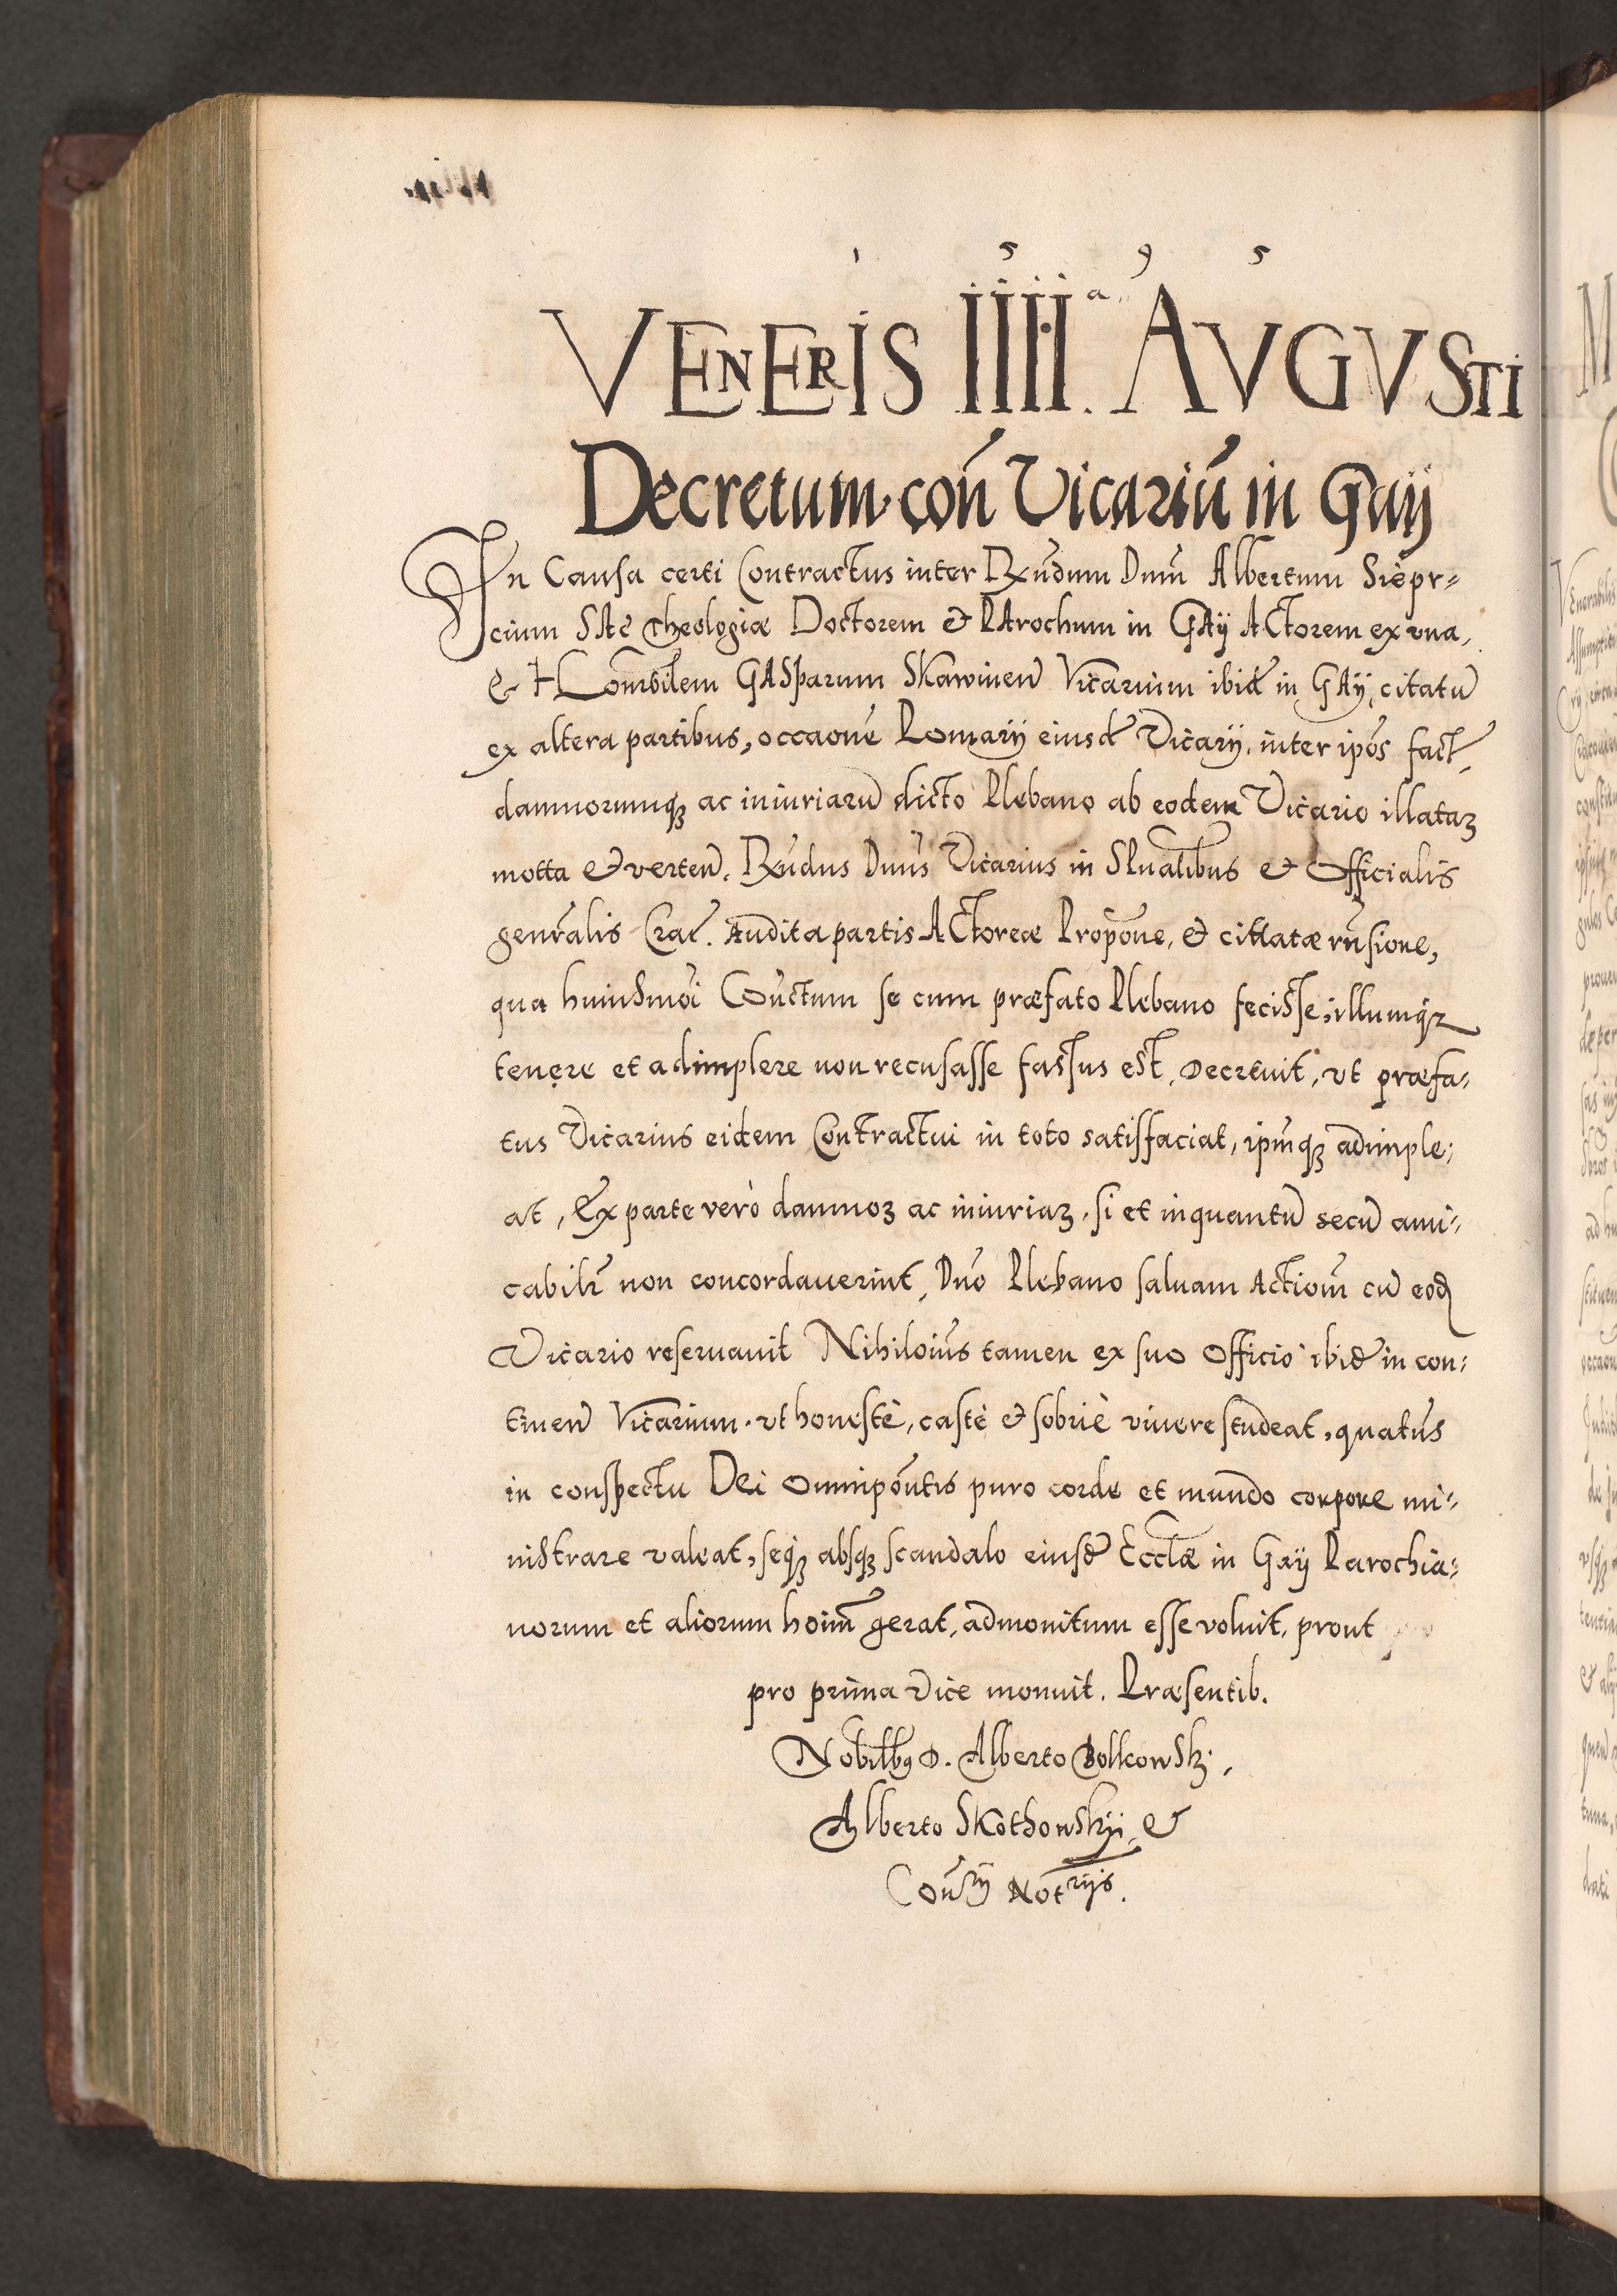 1 5 9 5
VENERIS IIII.ª AVGVSTI
Decretum con̄ Vicariū in Gaÿ
In Causa certi Contractus inter Rn̄dum Dnūm Albertum Siepr=
cium SAe Theologiæ Doctorem & PArochum in GAÿ ACtorem ex vna,
& Honorabilem GASparum SKawinen̄ Vicarium ibid̄ in GAÿ, citatū
ex altera partibus, occaōne Romarÿ eiusd̄ Vicarÿ, inter ip̄os fact,
damnorumqȝ ac iniuriarū dicto Plebano ab eodem Vicario illataȝ
motta & verten̄. Rn̄dus Dnūs Vicarius in SPualibus & Officialis
genr̄alis Crac̄. Audita partis ACtoreæ Propōne, & cittatæ rn̄sione,
qua huiusmōi Con̄ctum se cum præfato Plebano fecisse, illumqȝ
tenere et adimplere non recusasse fassus est, Decreuit, vt præfa=
tus Vicarius eidem Contractui in toto satisfaciat, ipm̄qȝ adimple=
at, Ex parte verò damnoȝ ac iniuriaȝ, si et inquantū secū ami=
cabilr̄ non concordauerint, Dnō Plebano saluam Actiom̄ cū eod̄
Vicario reseruauit Nihiloīus tamen ex suo Officio ibid̄ in con=
tinen̄ Vicarium. vt honestè, castè & sobriè viuere studeat, quatn̄s
in conspectu Dei Omnipōntis puro corde et mundo corpore mi=
nistrare valeat, seqȝ absqȝ scandalo eiusd̄ Eccl̄æ in Gaÿ Parochia=
norum et aliorum hoīm̄ gerat, admonitum esse voluit, prout
pro prima vice monuit. Præsentib.
Nobilibȝ D. Alberto Bolkowskj,
Alberto SKothowskÿ, &
Con̄rÿ Notrijs.